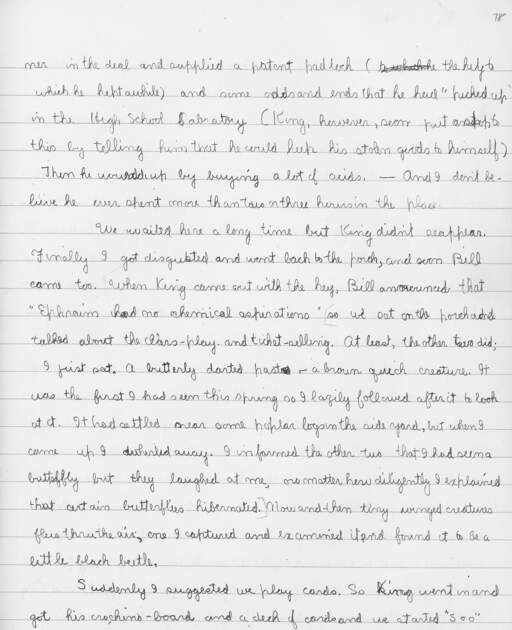 78
ner in the deal and supplied a patent padlock ( the key to
which he kept awhile) and some odds and ends that he had "picked up"
in the High School Labratory (King, however, soon put a stop to
this by telling him that he could keep his stolen goods to himself)
Then he wound up by buying a lot of acids. — And I don't be-
lieve he ever spent more than two or three hours in the place.
We waited here a long time but King didn't reappear.
Finally I got disgusted and went back to the porch, and soon Bill
came too. When King came out with the key, Bill announced that
"Ephraim had no chemical aspirations" so we sat on the porch and
talked about the class-play and ticket-selling. At least, the other two did;
I just sat. A butterly darted past – a brown quick creature. It
was the first I had seen this spring so I lazily followed after it to look
at it. It had settled near some poplar logs in the side yard, but when I
came up I away. I informed the other two that I had seen a
butterfly but they laughed at me, no matter how diligently I explained
that certain butterflies hibernated.] Now and then tiny winged creatures
flew thru the air, one I captured and examined it and found it to be a
little black beetle.
Suddenly I suggested we play cards. So King went in and
got his board and a deck of cards and we started "500"